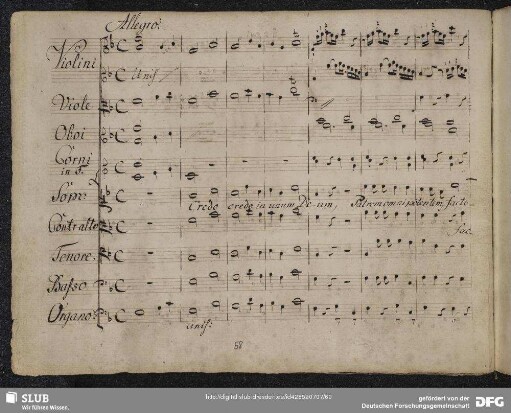 Allegro.
Violini
Unis
Viole
Oboi
Corni
in F.
Sopr:
Credo credo in unum De-um, Patrem omnipotentem, facto-
Contralto
Fac
Tenore.
Basso
Organo.
unis:
58
SLUB
Wir führen Wissen.
gefördert von der
Deutschen Forschungsgemeinschaft
DFG